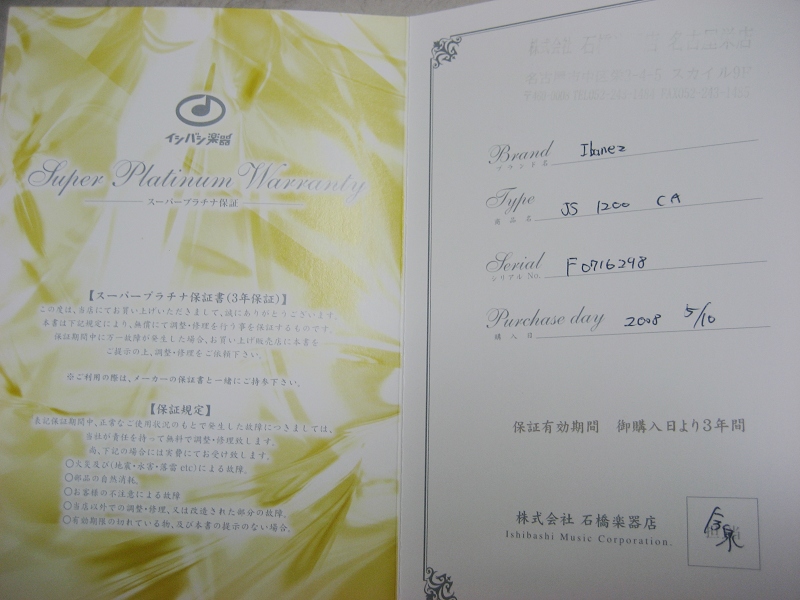 イシバシ楽器
Super Platinum Warranty
スーパープラチナ保証
【スーパープラチナ保証書(3年保証)】
この度は、当店にてお買い上げいただきまして、誠にありがとうございます。
本書は下記規定により、無償にて調整・修理を行う事を保証するものです。
保証期間中に万一故障が発生した場合、お買い上げ販売店に本書を
ご提示の上、調整・修理をご依頼下さい。
※ご利用の際は、メーカーの保証書と一緒にご持参下さい。
【保証規定】
表記保証期間中、正常なご使用状況のもとで発生した故障につきましては、
当社が責任を持って無料で調整・修理致します。
尚、下記の場合には実費にてお受け致します。
○火災及び(地震・水害・落雷etc)による故障。
○部品の自然消耗。
○お客様の不注意による故障
○当店以外での調整・修理、又は改造された部分の故障。
○有効期限の切れている物、及び本書の提示のない場合。
株式会社 石 名古屋栄店
スカイル9F
Brand Ibanez
ブランド名
Type JS 1200 CA
商品名
Serial F0716298
シリアルNo.
Purchase day 2008 5/10
購入日
保証有効期間 御購入日より3年間
株式会社 石橋楽器店
Ishibashi Music Corporation.